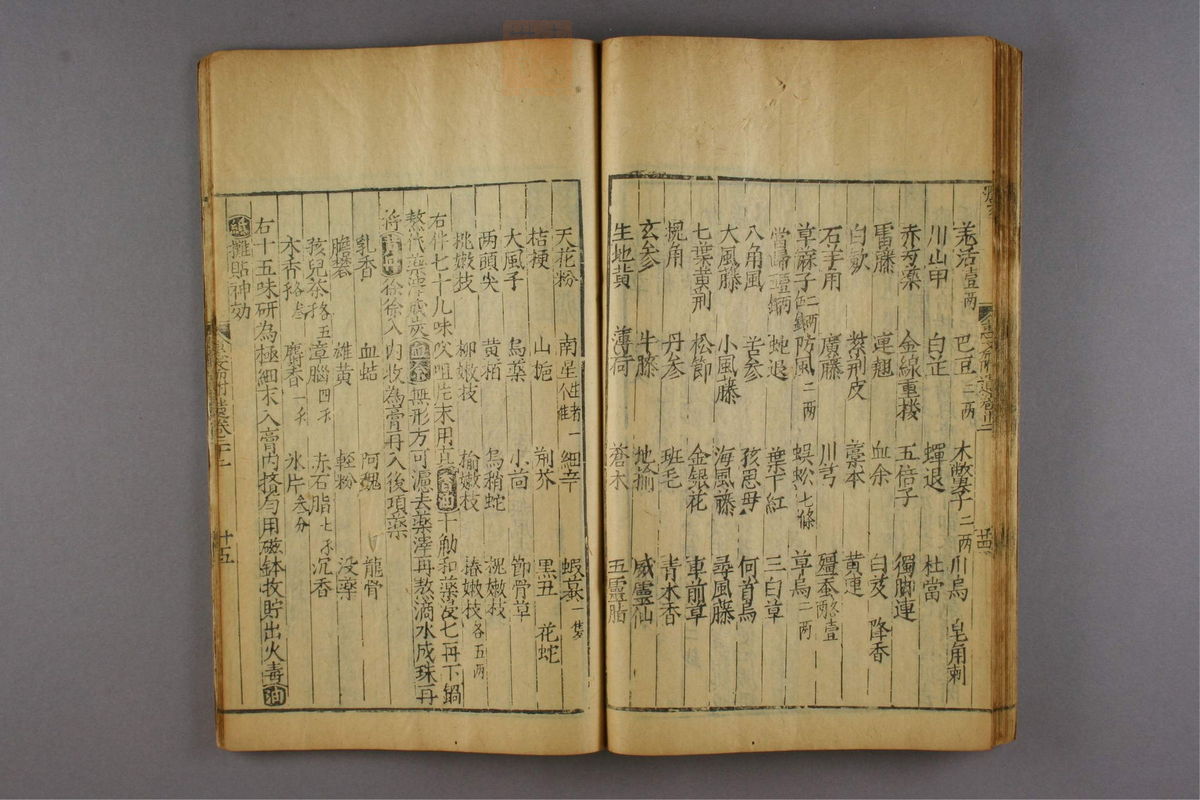 羌活壹兩 巴豆二兩 木鱉子二兩 川烏 皂角刺
川山甲 白芷 蟬退 杜當
赤芍藥 金線重樓 五倍子 獨脚連
雷藤 連翹 血余 白芨 降香
白歛 紫荆皮 藁本 黄連
石羊用 廣藤 川芎 殭蚕各壹兩
草麻子二兩 防風二兩 蜈蚣七條 草烏二兩
當歸壹兩 蛇退 葉下紅 三白草
八角風 苦参 孩児母 何首烏
大風藤 小風藤 海風藤 尋風藤
七葉黄荆 松節 金銀花 車前草
槐角 丹参 班毛 青木香
玄参 牛膝 地榆 威靈仙
生地黄 薄荷 蒼术 五靈脂
天花粉 南星 細辛 蝦蟇一隻
桔梗 山梔 荆芥 黒丑 花蛇
大風子 烏藥 小茴 節骨草
两頭尖 黄栢 烏稍蛇 槐嫩枝
桃嫩枝 柳嫩枝 榆嫩枝 椿嫩枝各五两
右件七十九味㕮咀片末用真 十觔和藥浸七日再下鍋
熬待藥滓成炭 無形方可濾去藥滓再熬滴水成珠再
将 徐徐入内收為膏再入後項藥
乳香 血蝎 阿魏 龍骨
膽礬 雄黄 輕粉 没藥
孩兒茶各五 章腦四不 赤石脂七不 沉香
木香 麝香一 氷片叁分
右十五味研為極細末入膏内擠匀用磁鉢收貯出火毒油
紙攤貼神効
十五